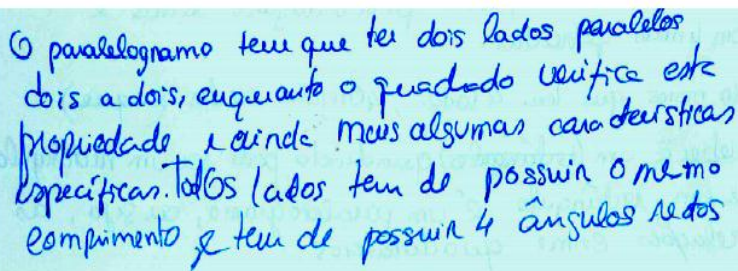 O paralelogramo tem que ter dois lados paralelos
dois a dois, enquanto o quadrado verifica esta
propriedade e ainda mais algumas características
específicas. Todos lados tem de possuir o mesmo
comprimento e tem de possuir 4 ângulos retos